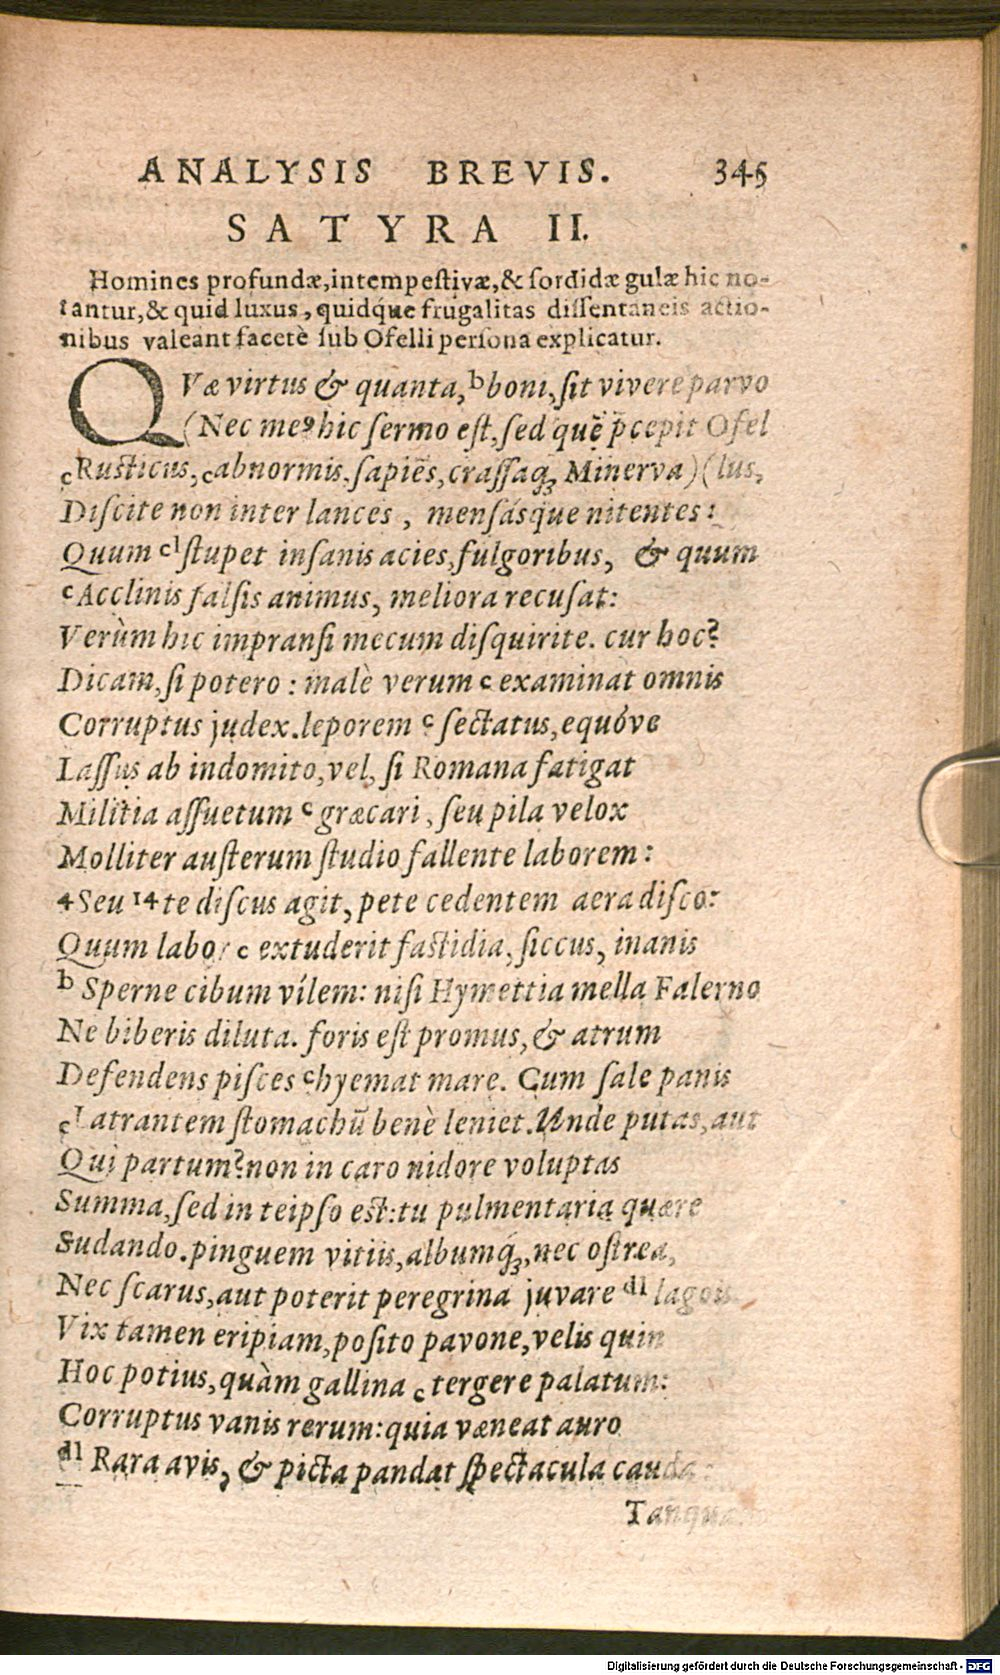 ANALYSIS BREVIS. 345
SATYRA II.
Homines profundæ, intempestivæ, & sordidæ gulæ hic no-
tantur, & quid luxus, quidq́ue frugalitas dissentaneis actio-
nibus valeant facetè sub Ofelli persona explicatur.
QVæ virtus & quanta, b boni, sit vivere parvo
(Nec meꝰ hic sermo est, sed quę̃ p̃cepit Ofel
c Rusticus, c abnormis. sapiẽs, crassaqꝫ Minerva) (lus,
Discite non inter lances, mensásque nitentes:
Quum cl stupet insanis acies, fulgoribus, & quum
c Acclinis falsis animus, meliora recusat:
Verùm hic impransi mecum disquirite. cur hoc?
Dicam, si potero: malè verum c examinat omnis
Corruptus judex. leporem c sectatus, equóve
Lassus ab indomito, vel, si Romana fatigat
Militia assuetum c græcari, seu pila velox
Molliter austerum studio fallente laborem:
4 Seu 14 te discus agit, pete cedentem aera disco:
Quum labor c extuderit fastidia, siccus, inanis
b Sperne cibum vílem: nisi Hymettia mella Falerno
Ne biberis diluta. foris est promus, & atrum
Defendens pisces c hyemat mare. Cum sale panis
c Latrantem stomachũ benè leniet. Unde putas, aut
Qui partum? non in caro nidore voluptas
Summa, sed in teipso est: tu pulmentaria quære
Sudando. pinguem vitiis, albumq́ꝫ, nec ostrea,
Nec scarus, aut poterit peregrina juvare dl lagois.
Vix tamen eripiam, posito pavone, velis quin
Hoc potius, quàm gallina c tergere palatum:
Corruptus vanis rerum: quia væneat auro
dl Rara avis, & picta pandat spectacula cauda:
Tanquam
Digitalisierung gefördert durch die Deutsche Forschungsgemeinschaft - DFG